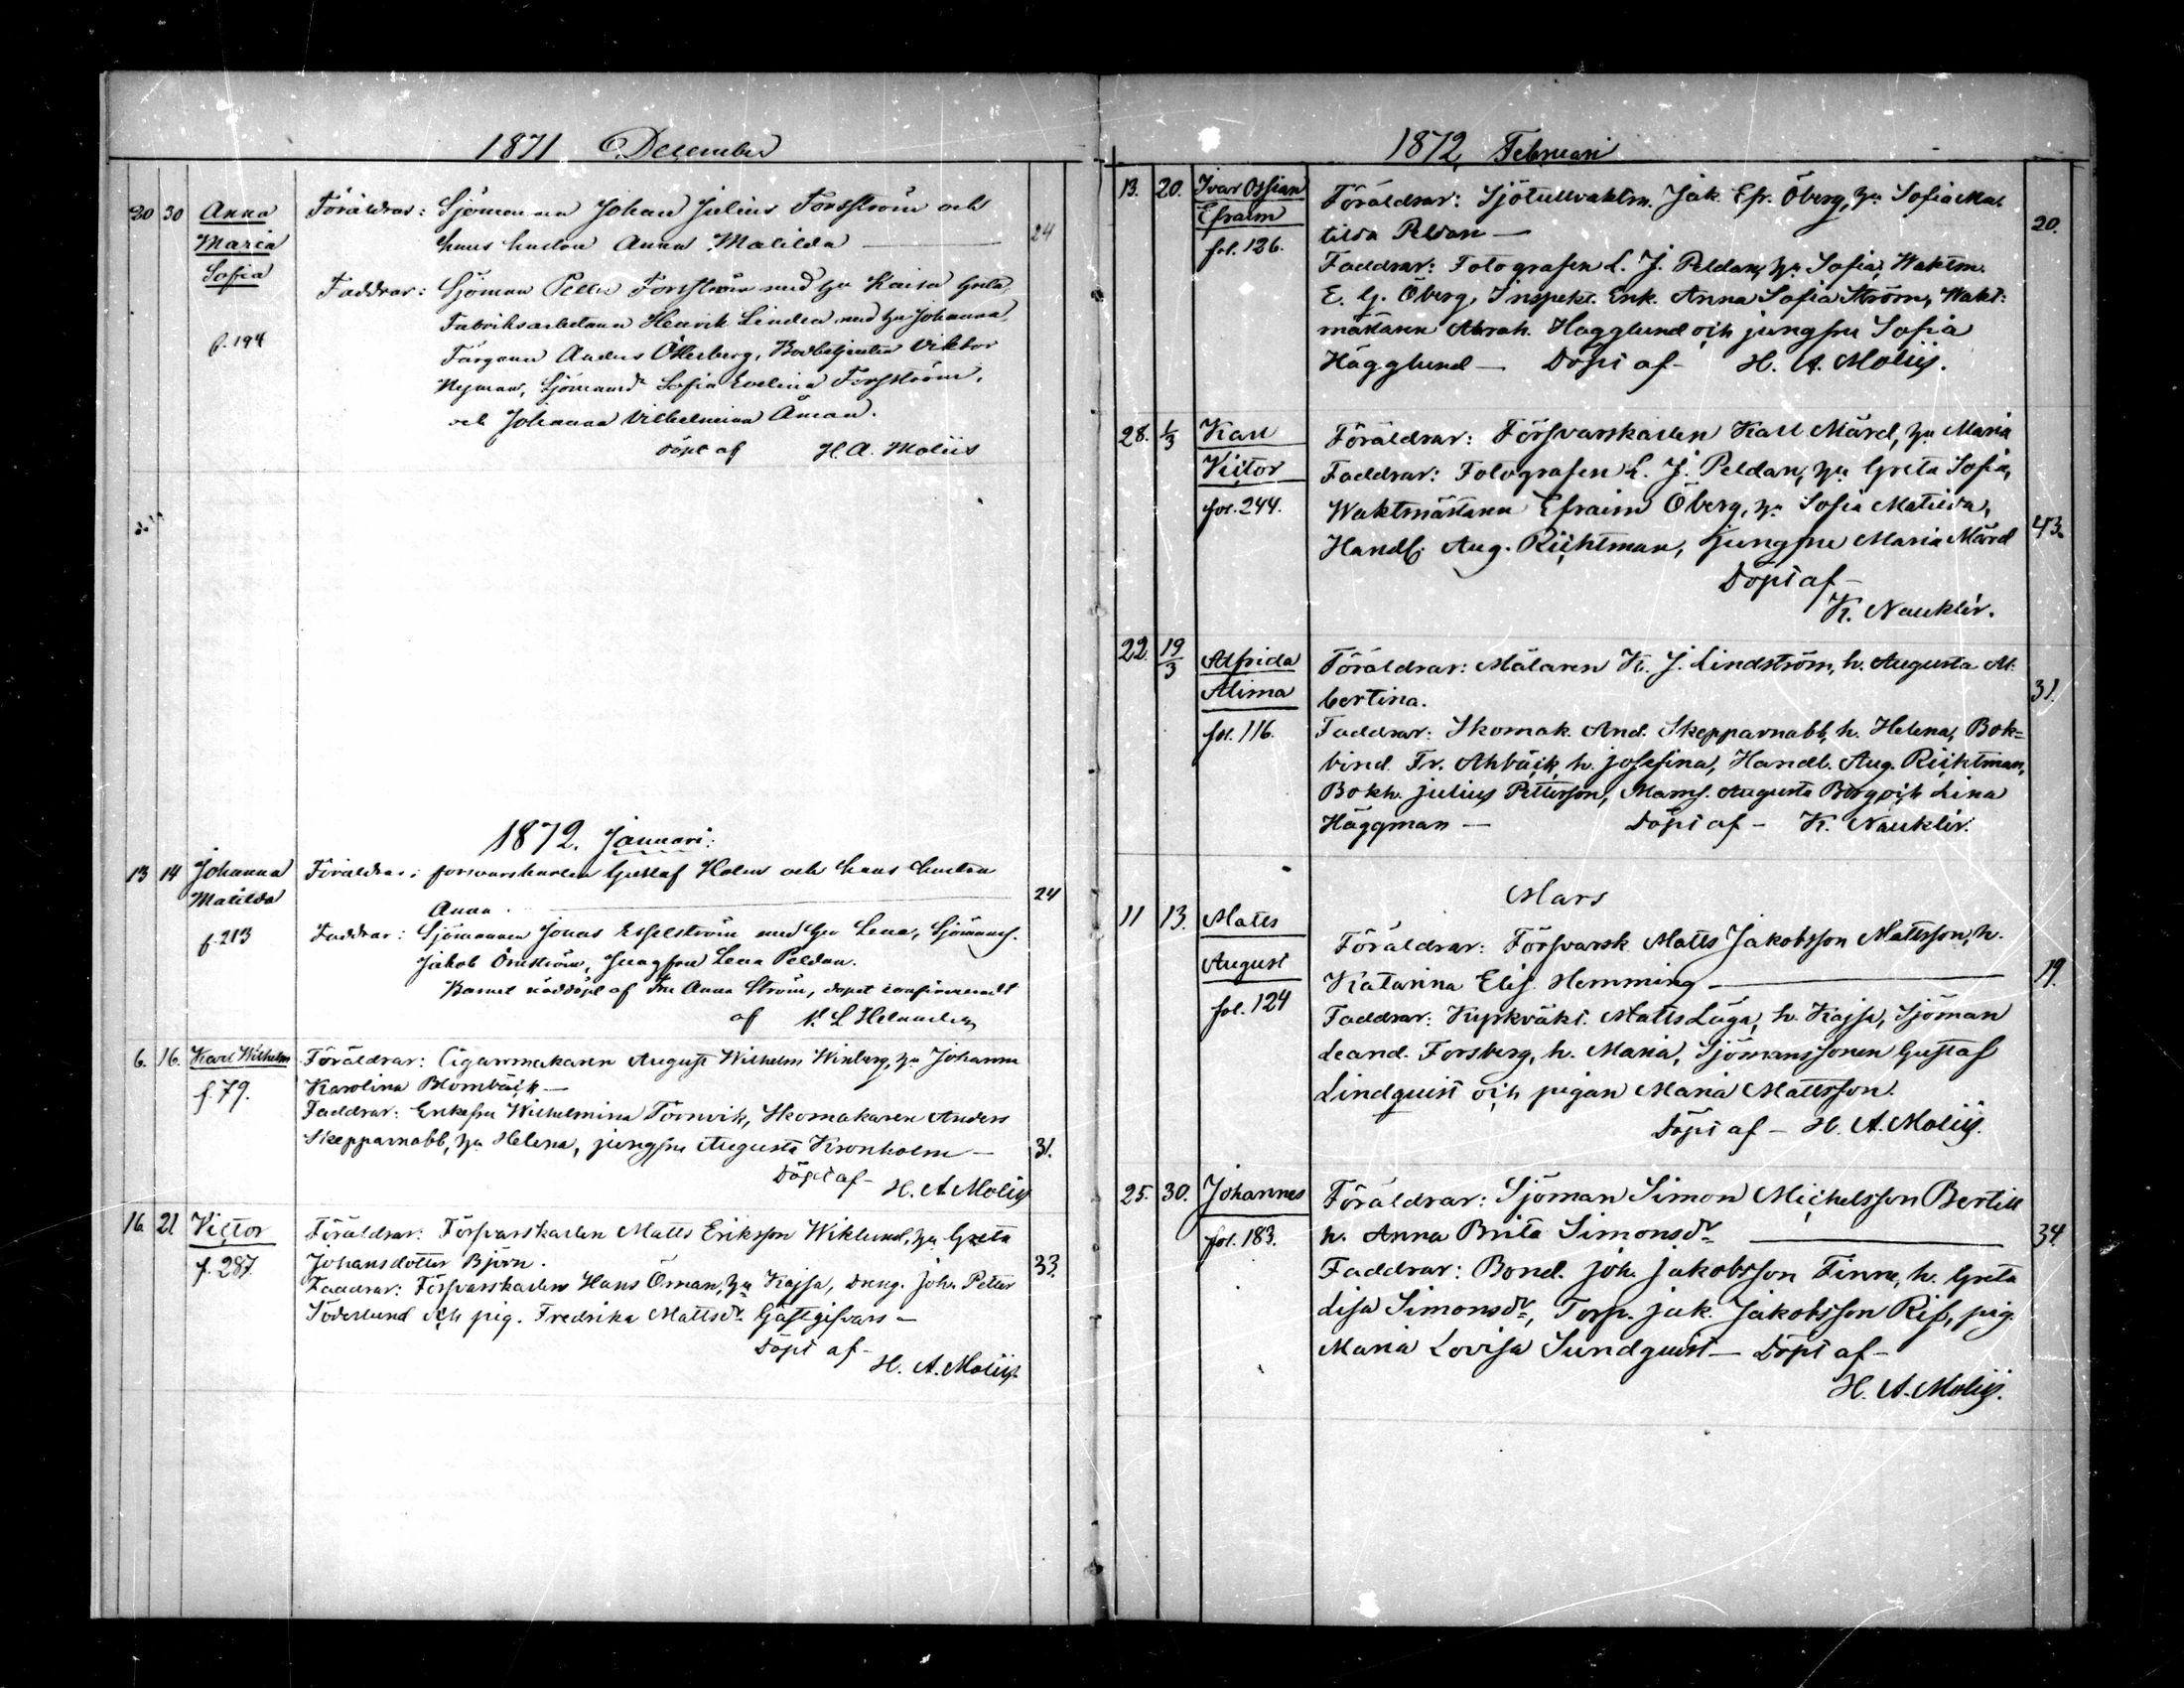 1871 December
20 30 Anna Föräldrar: Sjömannen Johan Julius Forsström och
Maria hans hustru Anna Matilda — 24
Sofia
Faddrar: Sjöman Petter Forsström med hu Kaisa Greta,
Fabriksarbetaren Henrik Linden med hu Johanna,
f. 194 Färgaren Anders Österberg, Bodbetjenten Viktor
Nyman, Sjömansdr Sofia Evelina Forsström,
och Johanna Vilhelmina Åman.
döpt af H. A. Moliis
1872. Januari:
13 14 Johanna Föräldrar: forsvarskarlen Gustaf Holm och hans hustru
Matilda Anna. — 24
f. 213 Faddrar: Sjömannen Jonas Esselström med hu Lena, Sjömans.
Jakob Örnström, Jungfru Lena Peldan.
Barnet nöddöpt af Fru Anna Ström, dopet confirmeradt
af Helander
6. 16. Karl Wilhelm Föräldrar: Cigarrmakaren August Wilhelm Winberg, hu Johanna
f. 79. Karolina Blombäck —
Faddrar: Enkefru Wilhelmina Törnvik, Skomakaren Anders
Skepparnabb, hu Helena, jungfru Augusta Kronholm — 31.
Döpt af — H. A. Moliis
16. 21 Victor Föräldrar: Försvarskarlen Matts Eriksson Wiklund, hu Greta
f. 287. Johansdotter Björn. 33.
Faddrar: Försvarskarlen Hans Öman, hu Kajsa, Dreng. Joh. Petter
Söderlund och pig. Fredrika Mattsdr Gästgifvars —
Döpt af —
H. A. Moliis
1872, Februari
13. 20. Ivar Ossian Föräldrar: Sjötullvaktm. Jak. Efr. Öberg, hu Sofia Ma-
Efraim tilda Peldan — 20.
fol. 126. Faddrar: Fotografen L. J. Peldan, hu Sofia, Waktm.
E. G. Öberg, Inspekt. Enk. Anna Sofia Ström, Wakt-
mästaren Abrah. Hägglund och jungfru Sofia
Hägglund — Döpt af — H. A. Moliis.
28. 1/3 Karl Föräldrar: Försvarskarlen Karl Mård, hu Maria
Victor Faddrar: Fotografen L. J. Peldan, hu Greta Sofia,
fol. 244. Waktmästaren Efraim Öberg, hu Sofia Matilda, 43.
Handl. Aug. Richtman, jungfru Maria Mård
Döpt af —
K. Nauklér.
22. 19/3 Alfrida Föräldrar: Målaren K. J. Lindström, h. Augusta Al-
Alima bertina. 31.
fol. 116. Faddrar: Skomak. And. Skepparnabb, h. Helena, Bok-
bind. Fr. Ahbäck, h. Josefina, Handl. Aug. Richtman,
Bokh. Julius Petterson, Mams. Augusta Borg och Lina
Häggman — Döpt af — K. Nauklér.
Mars
11 13. Matts Föräldrar: Försvarsk. Matts Jakobsson Mattsson, h.
August Katarina Elis. Hemming — 19.
fol. 124 Faddrar: Kyrkväkt. Matts Låga, h. Kajsa, Sjöman
Leand. Forsberg, h. Maria, Sjömanssonen Gustaf
Lindquist och pigan Maria Mattsson.
Döpt af — H. A. Moliis.
25. 30. Johannes Föräldrar: Sjöman Simon Michelsson Bertill
fol. 183. h. Anna Brita Simonsdr — 34.
Faddrar: Bond. Joh. Jakobsson Finne, h. Greta
Lisa Simonsdr, Torp. Jak. Jakobsson Rif, pig.
Maria Lovisa Sundquist — Döpt af —
H. A. Moliis.